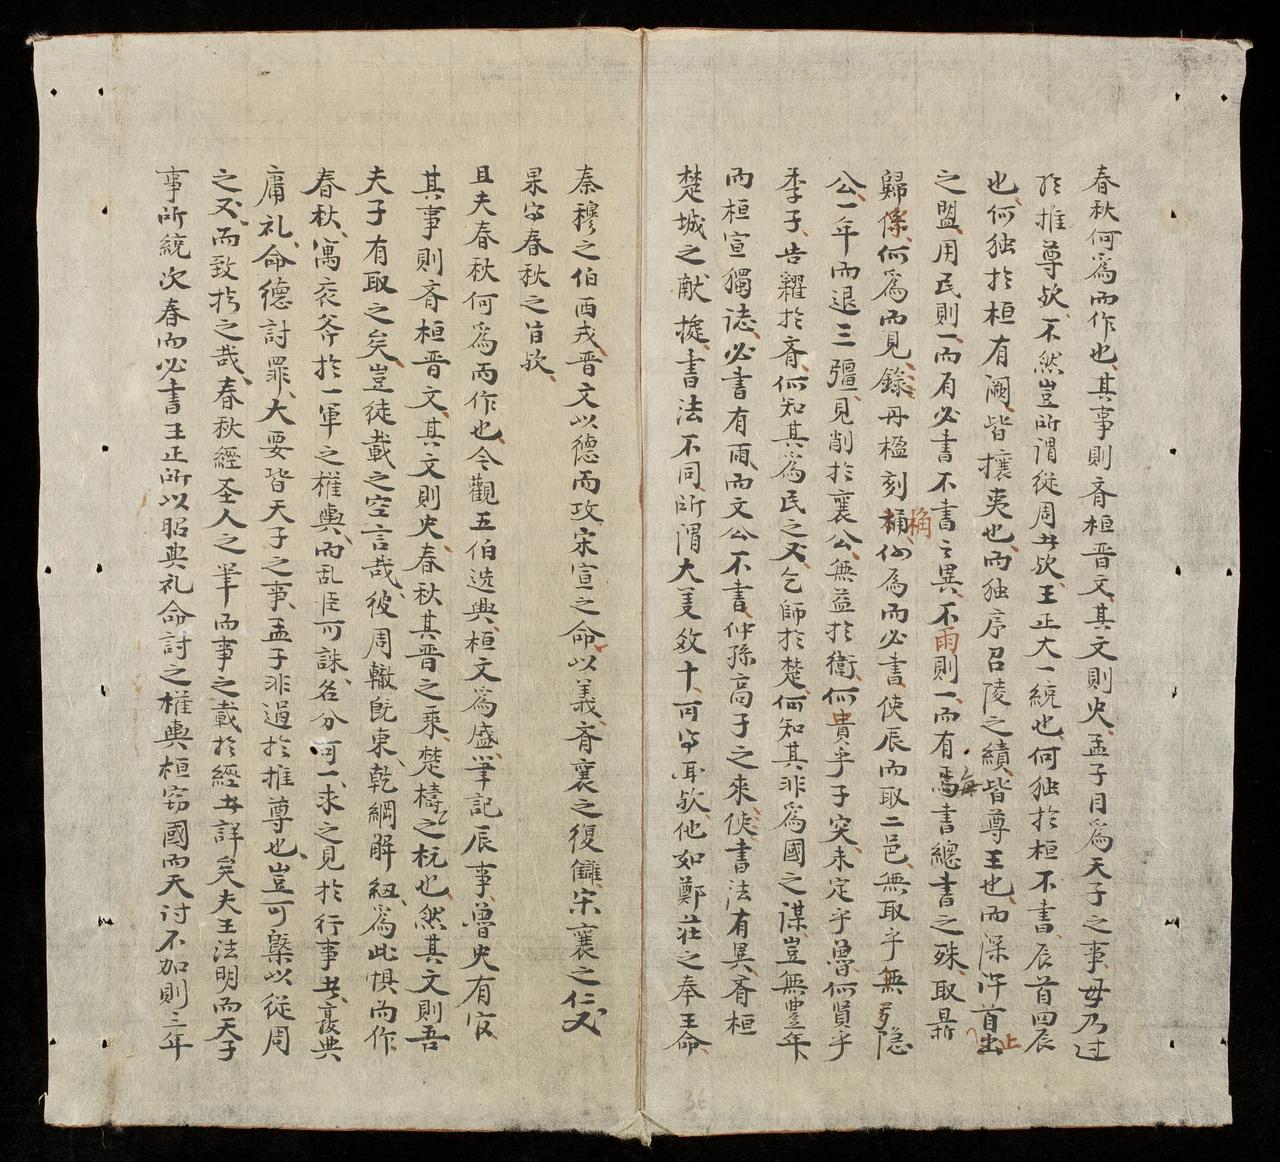 春秋何爲而作也其事則斉桓晋文其文則史孟子目爲天子之事毋乃过
於推尊欤不然豈所謂從周者欤王正大一統也何独於桓不書辰首四辰
也何独於桓有闕皆攘夷也而独序召陵之績皆尊王也而深許首止
之盟用民則一而有必書不書之異不雨則一而有每書總書之殊取鼎
歸俘何爲而見錄丹楹刻桷何為而必書使辰而取二邑無取乎無隐
公一年而退三彊見削於襄公無益於衛何貴乎子突未定乎魯何贤乎
季子告糴於斉何知其爲民之又乞師於楚何知其非爲國之謀豈無豊年
而桓宣獨誌必書有雨而文公不書仲孫高子之來侠書法有異斉桓
楚城之献捷書法不同所謂大美效十可字耳欤他如鄭莊之奉王命
秦穆之伯西戎晋文以德而攻宋宣之命以義斉襄之復讎宋襄之仁又
果字春秋之旨欤
且夫春秋何爲而作也今觀五伯迭興桓文爲盛筆記辰事魯史有官
其事則斉桓晋文其文則史春秋其晋之乘楚檮之杌也然其文則吾
夫子有取之矣豈徒載之空言哉彼周轍既東乾綱解紐爲此惧而作
春秋寓衮斧於一軍之権輿而乱臣可誅名分可一求之見於行事者褒典
庸礼命德討罪大要皆天子之事孟子非過於推尊也豈可槩以從周
之又而致於之哉春秋經圣人之筆而事之載於經者詳矣夫王法明而天子
事所統次春而必書王正所以昭典礼命討之権輿桓窃國而天讨不加則三年